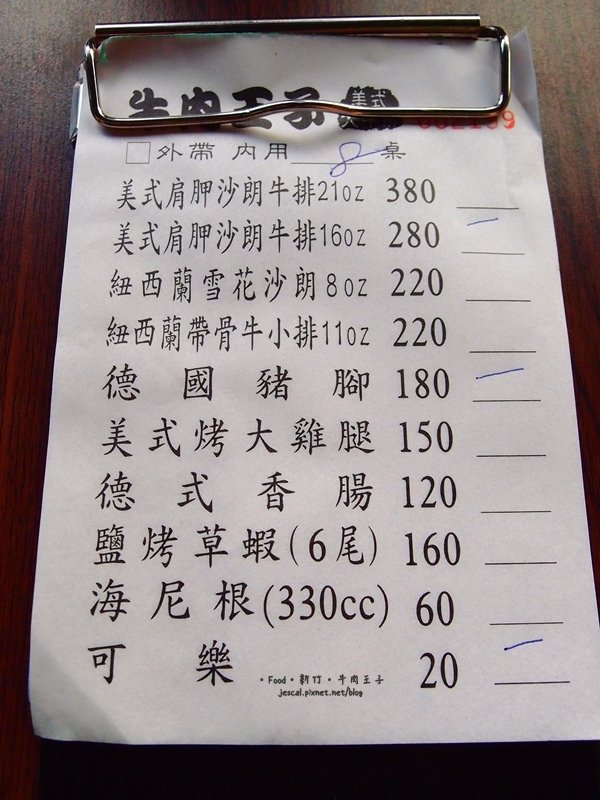 牛肉王子 美式
002199
外帶 內用 8 桌
美式肩胛沙朗牛排21oz 380
美式肩胛沙朗牛排16oz 280
紐西蘭雪花沙朗8oz 220
紐西蘭帶骨牛小排11oz 220
德國豬腳 180
美式烤大雞腿 150
德式香腸 120
鹽烤草蝦(6尾) 160
海尼根(330cc) 60
可樂 20
•Food•新竹•牛肉王子
jescal.pixnet.net/blog